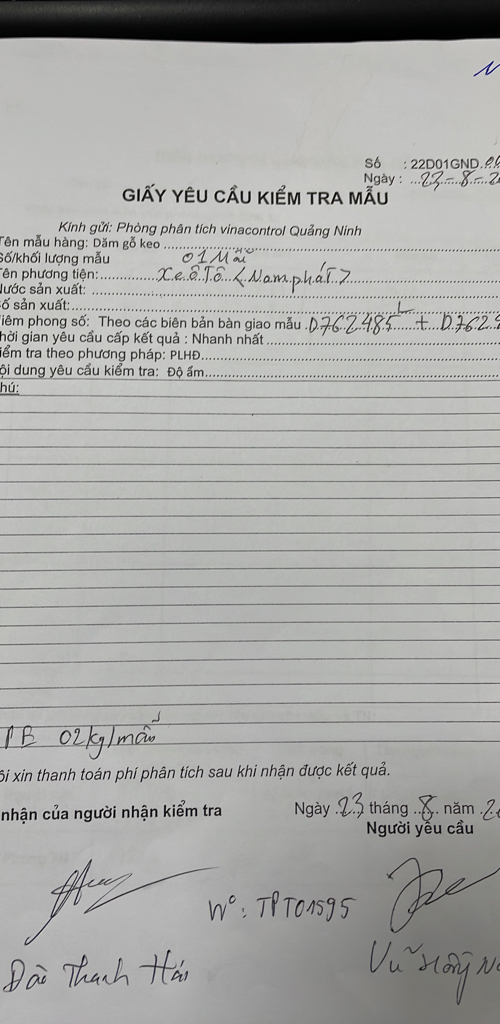 Số : 22D01GND.
Ngày : 23-8-2
GIẤY YÊU CẦU KIỂM TRA MẪU
Kính gửi: Phòng phân tích vinacontrol Quảng Ninh
Tên mẫu hàng: Dăm gỗ keo
Số/khối lượng mẫu 01 Mẫu
Tên phương tiện: Xe ô Tô <Nam phát>
Nước sản xuất:
Số sản xuất:
iêm phong số: Theo các biên bản bàn giao mẫu D762485 + D.762
hời gian yêu cầu cấp kết quả : Nhanh nhất
iểm tra theo phương pháp: PLHĐ
ội dung yêu cầu kiểm tra: Độ ẩm
hú:
TB 02kg/mẫu
ôi xin thanh toán phí phân tích sau khi nhận được kết quả.
nhận của người nhận kiểm tra
Ngày 23 tháng 8 năm 2
Người yêu cầu
N°: TPT01595
Thanh Hải
Vũ Hồng